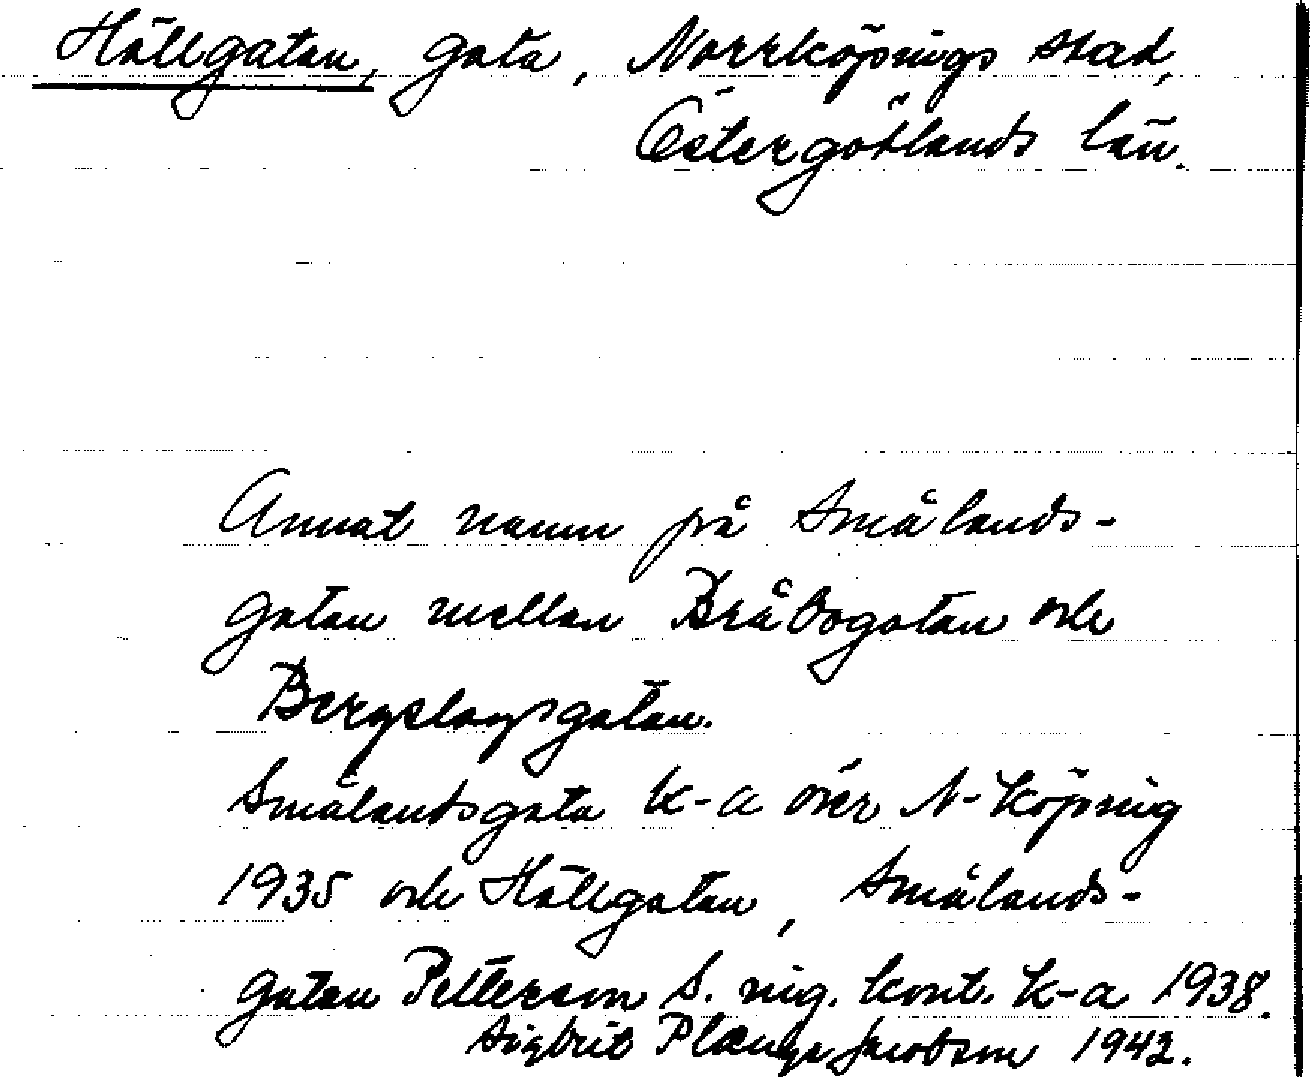 Hällgatan, gata, Norrköpings stad,
Östergötlands län.
Annat namn på Smålands-
gatan mellan Bråbogatan och
Bergslagsgatan.
Smålandsgata k-a över N-köping
1935 och Hällgatan, Smålands-
gatan Petterson S. ing. kont. k-a 1938.
Sigbrit Plænge Jacobson 1942.